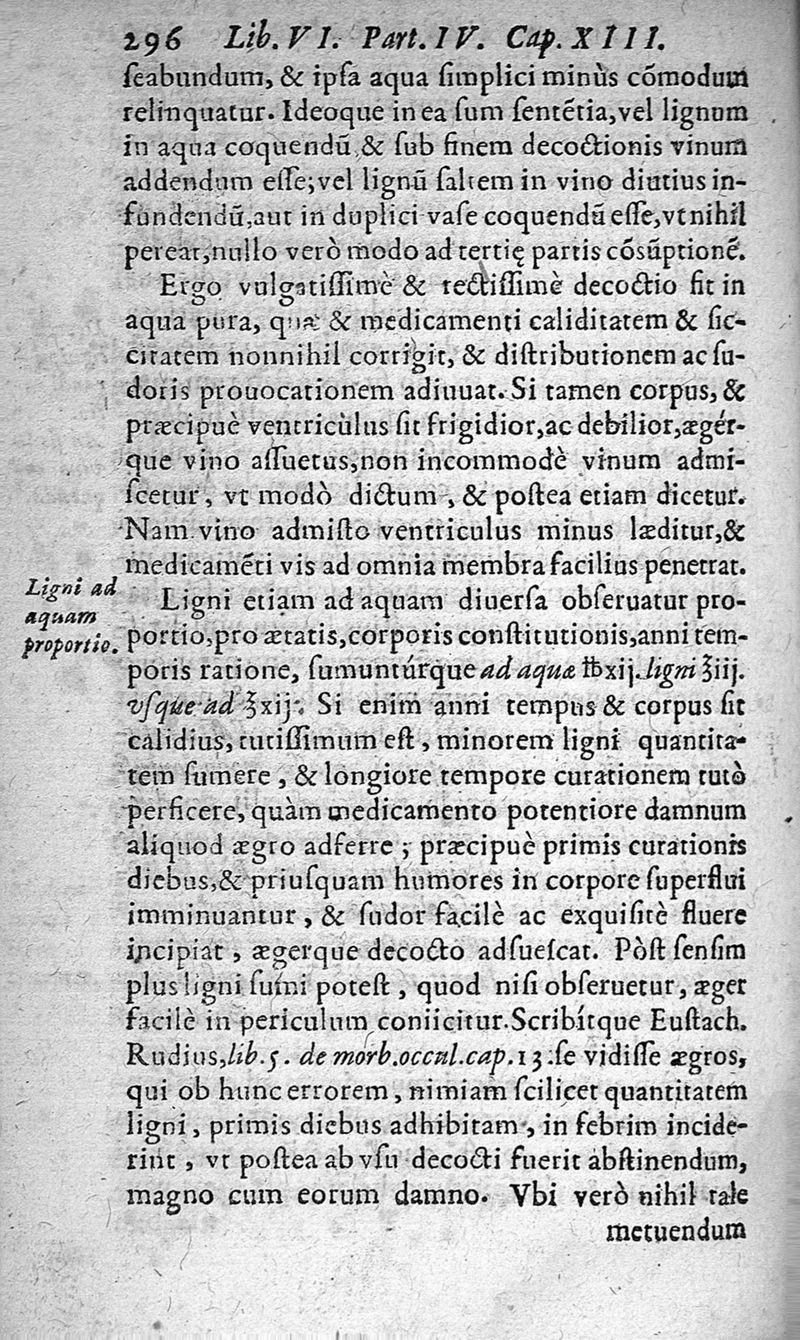 296 Lib. VI. Part. IV. Cap. XIII.
ſeabundum, & ipſa aqua ſimplici minùs cõmodum
relinquatur. Ideoque in ea ſum ſentẽtia, vel lignum
in aqua coquendũ, & ſub finem decoctionis vinum
addendum eſſe; vel lignũ ſaltem in vino diutius in-
fundendũ, aut in duplici vaſe coquendũ eſſe, vt nihil
pereat, nullo verò modo ad tertię partis cõsũptionẽ.
Ergo vulgatiſſimè & rectiſſimè decoctio fit in
aqua pura, quæ & medicamenti caliditatem & ſic-
citatem nonnihil corrigit, & diſtributionem ac ſu-
doris prouocationem adiuuat. Si tamen corpus, &
præcipuè ventricùlus ſit frigidior, ac debilior, ægér-
que vino aſſuetus, non incommodè vinum admi-
ſcetur, vt modò dictum, & poſtea etiam dicetur.
Nam vino admiſto ventriculus minus læditur, &
medicamẽti vis ad omnia membra facilius penetrat.
Ligni ad
aquam
proportio.
Ligni etiam ad aquam diuerſa obſeruatur pro-
portio, pro ætatis, corporis conſtitutionis, anni tem-
poris ratione, ſumuntúrque ad aquæ ℔xij. ligni ℥iij.
vſque ad ℥xij. Si enim anni tempus & corpus ſit
calidius, tutiſſimum eſt, minorem ligni quantita-
tem ſumere, & longiore tempore curationem tutò
perficere, quàm medicamento potentiore damnum
aliquod ægro adferre; præcipuè primis curationis
diebus, & priuſquam humores in corpore ſuperflui
imminuantur, & ſudor facilè ac exquiſitè fluere
incipiat, ægerque decocto adſueſcat. Pòſt ſenſim
plus ligni ſumi poteſt, quod niſi obſeruetur, æger
facilè in periculum coniicitur. Scribítque Euſtach.
Rudius, lib. 5. de morb. occul. cap. 13. ſe vidiſſe ægros,
qui ob hunc errorem, nimiam ſcilicet quantitatem
ligni, primis diebus adhibitam, in febrim incide-
rint, vt poſtea ab vſu decocti fuerit abſtinendum,
magno cum eorum damno. Vbi verò nihil tale
metuendum